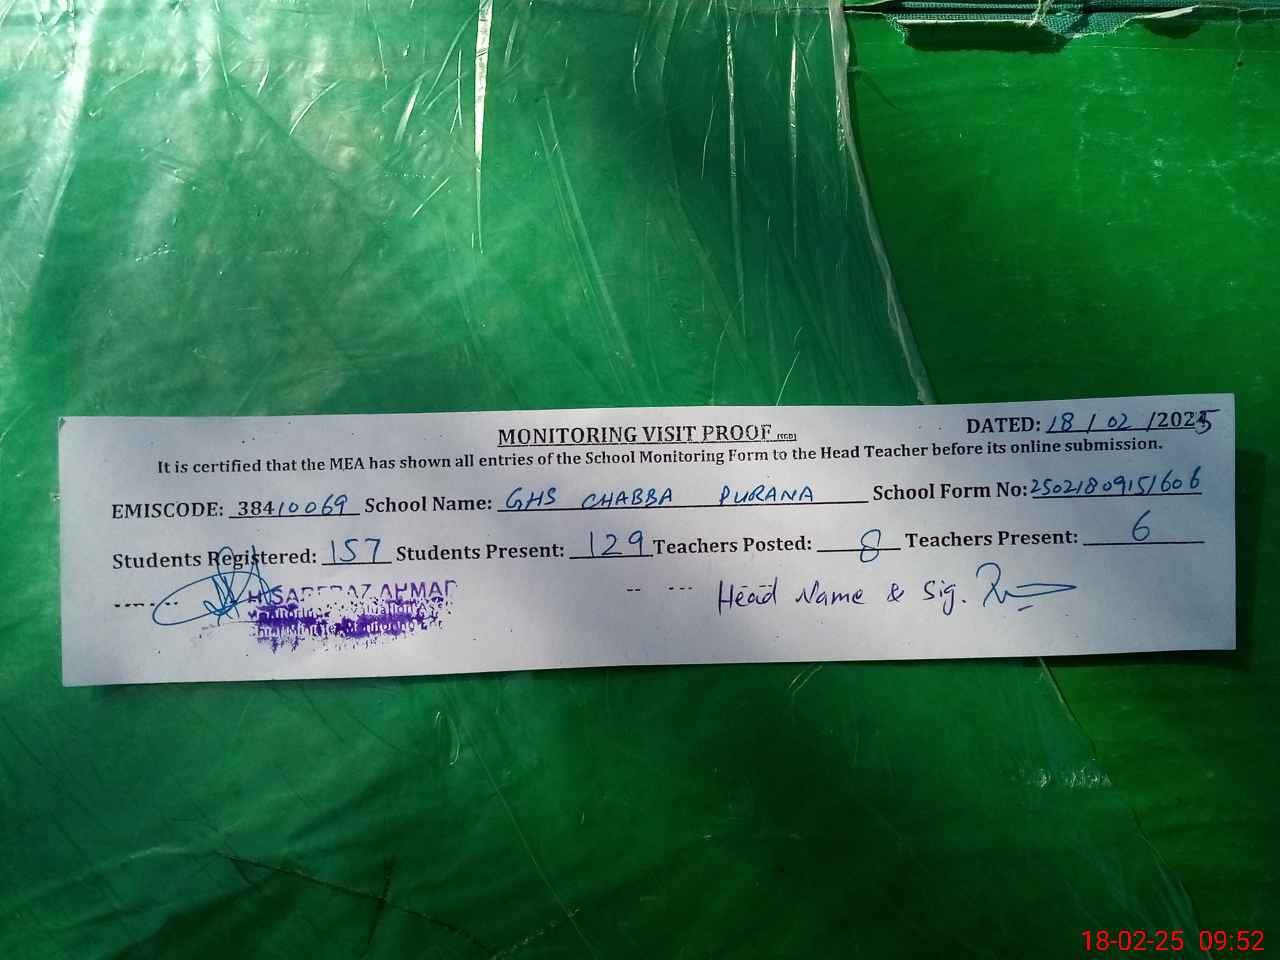 MONITORING VISIT PROOF
DATED: 18 / 02 /2025
It is certified that the MEA has shown all entries of the School Monitoring Form to the Head Teacher before its online submission.
EMISCODE: 38410069 School Name: GHS CHABBA PURANA School Form No: 25021809151606
Students Registered: 157 Students Present: 129 Teachers Posted: 8 Teachers Present: 6
AHMAD
Head Name & Sig.
18-02-25 09:52